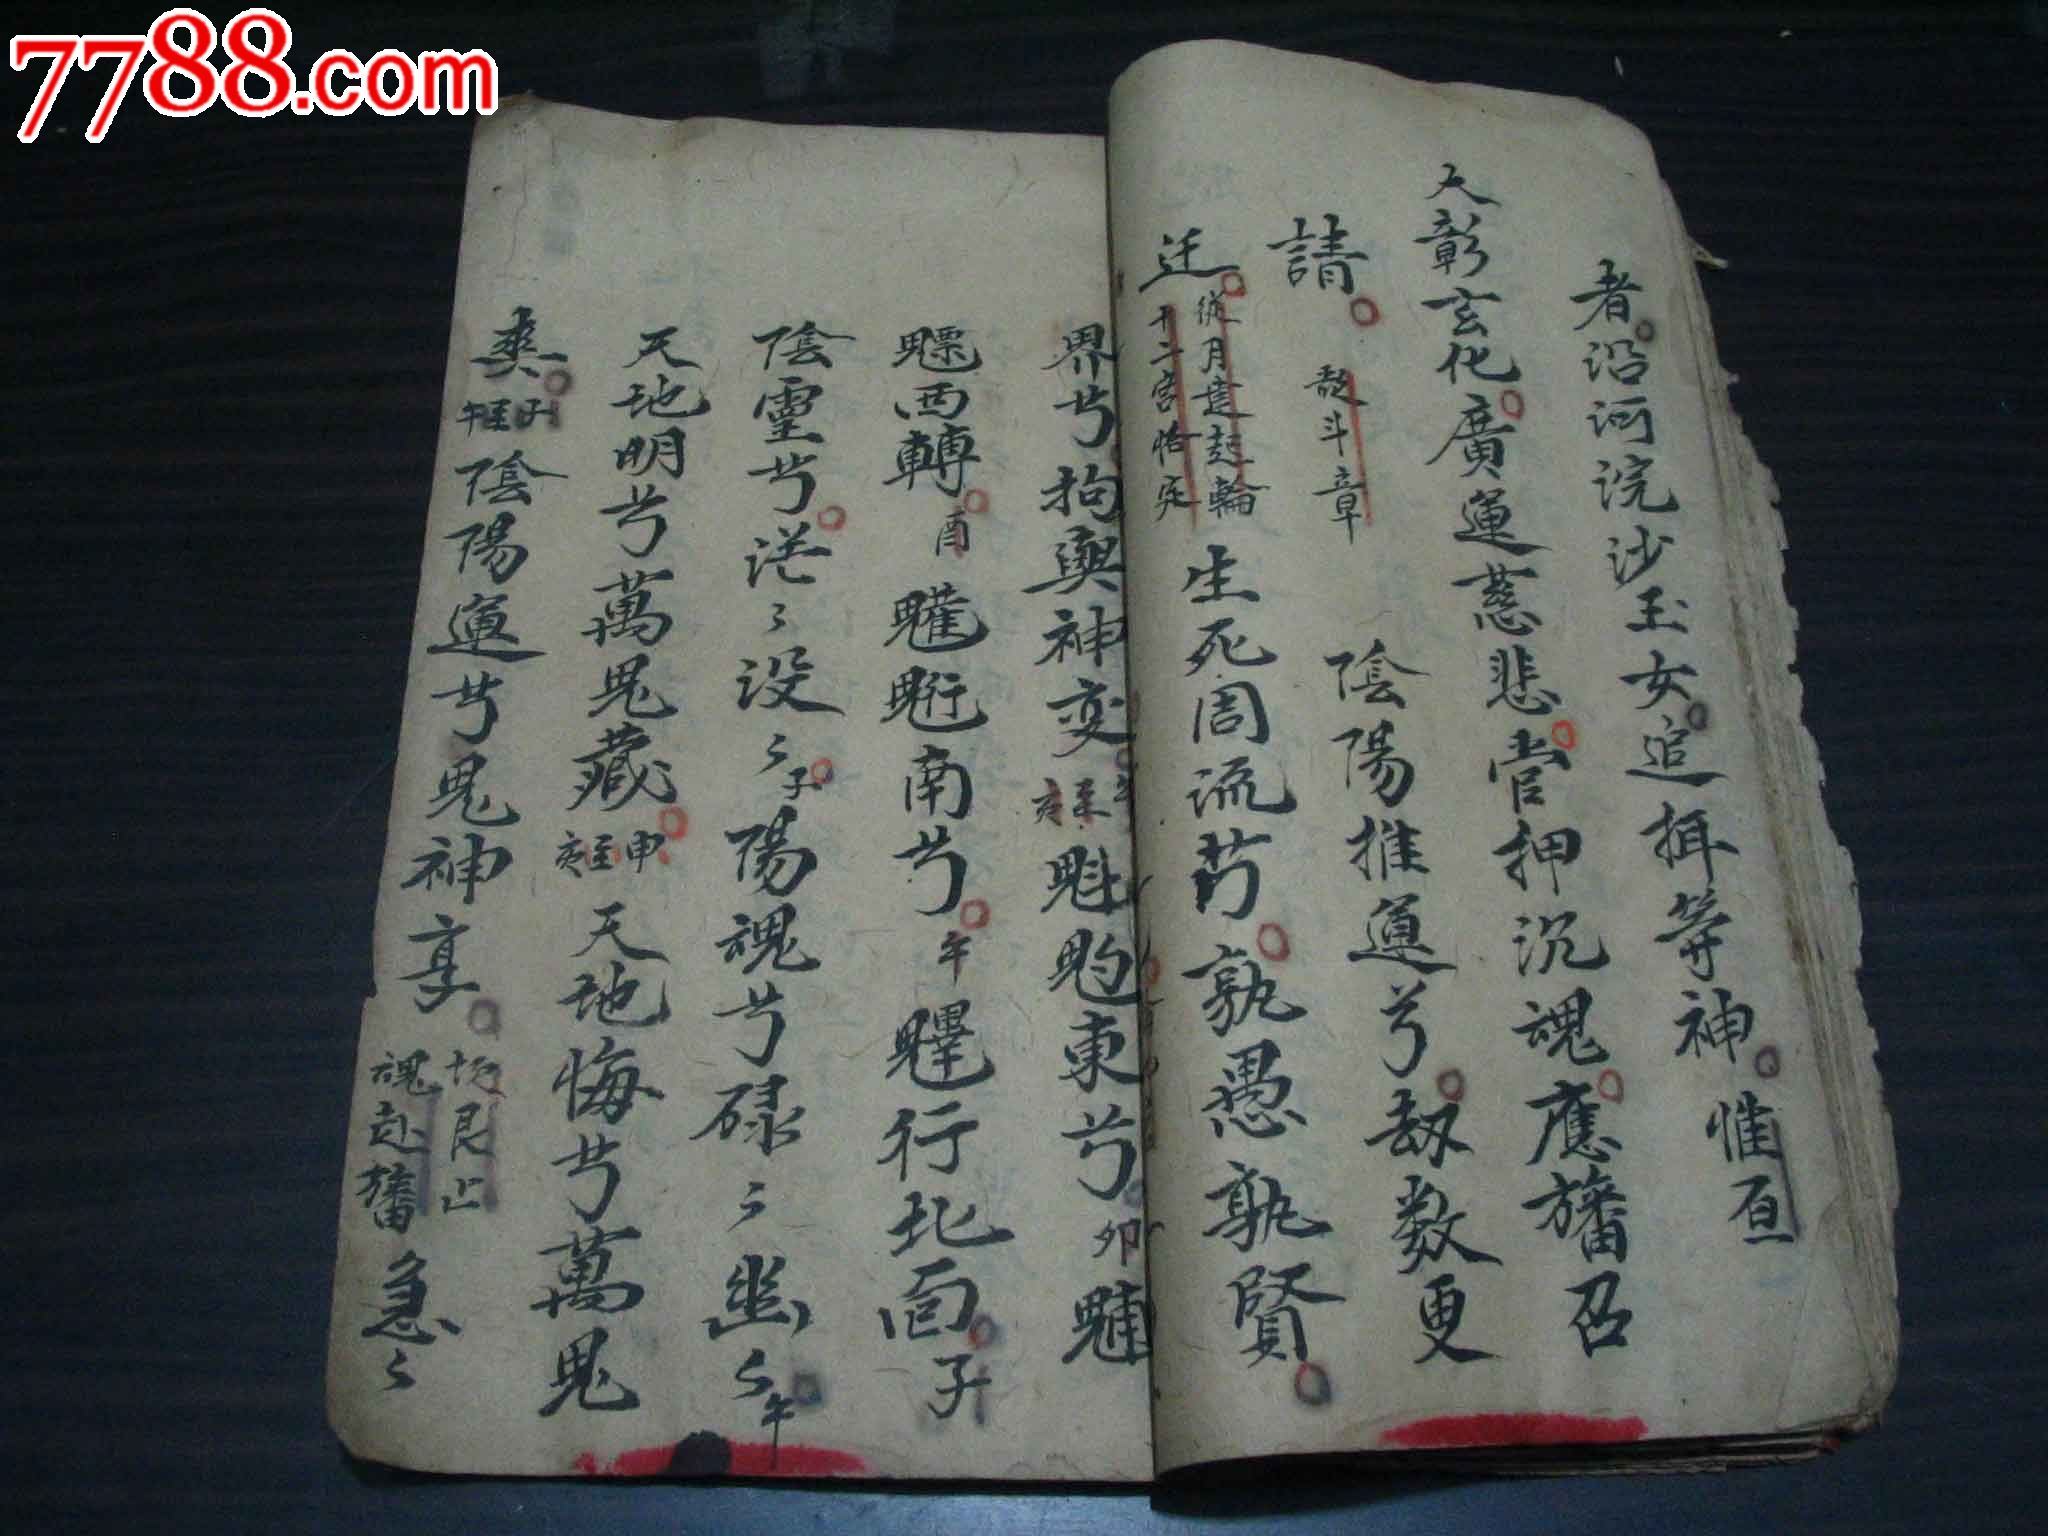 7788.com
者沿河浣沙玉女追拝等神惟亘
大彰玄化廣運慈悲當押沉魂應旛召
請 斗章 陰陽推遷兮劫数更
迁 從月建起輪
十二宮恰定
生死周流兮孰愚孰賢
界兮拘與神変亥至未魁魡東兮卯魓
魒西轉酉䰧䰢南兮午魓行北面子
陰靈兮茫〻設〻子陽魂兮碌〻幽〻午
天地明兮萬鬼藏申至亥天地悔兮萬鬼
奭子至午陰陽運兮鬼神享
艮止
魂赴旛
急〻